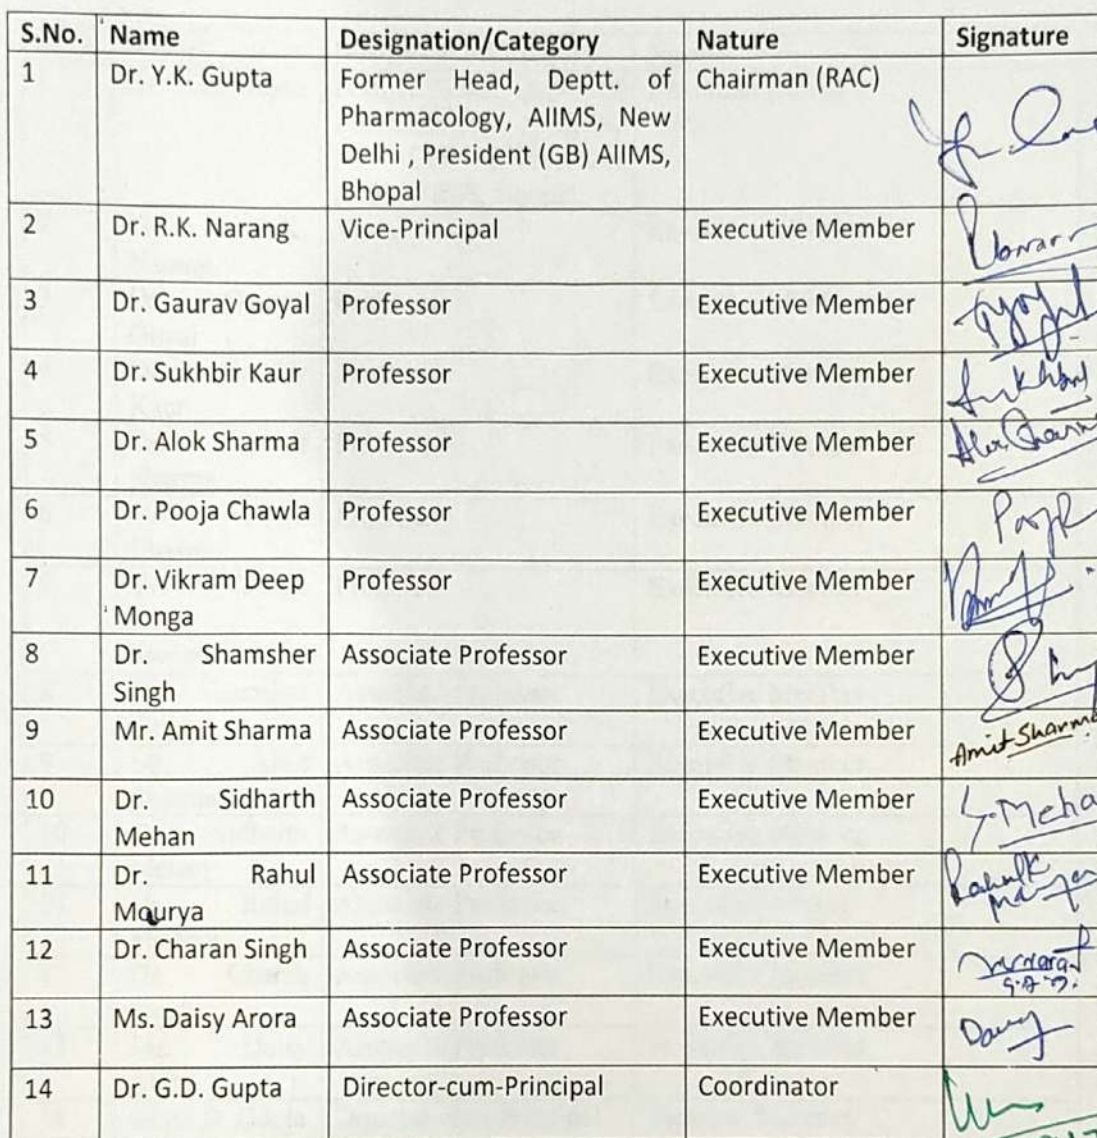 S.No. Name Designation/Category Nature Signature
1 Dr. Y.K. Gupta Former Head, Deptt. of Chairman (RAC)
Pharmacology, AIIMS, New
Delhi , President (GB) AIIMS,
Bhopal
2 Dr. R.K. Narang Vice-Principal Executive Member
3 Dr. Gaurav Goyal Professor Executive Member
4 Dr. Sukhbir Kaur Professor Executive Member
5 Dr. Alok Sharma Professor Executive Member
6 Dr. Pooja Chawla Professor Executive Member
7 Dr. Vikram Deep Professor Executive Member
Monga
8 Dr. Shamsher Associate Professor Executive Member
Singh
9 Mr. Amit Sharma Associate Professor Executive Member Amit Sharma
10 Dr. Sidharth Associate Professor Executive Member S. Meha
Mehan
11 Dr. Rahul Associate Professor Executive Member
Maurya
12 Dr. Charan Singh Associate Professor Executive Member
13 Ms. Daisy Arora Associate Professor Executive Member
14 Dr. G.D. Gupta Director-cum-Principal Coordinator